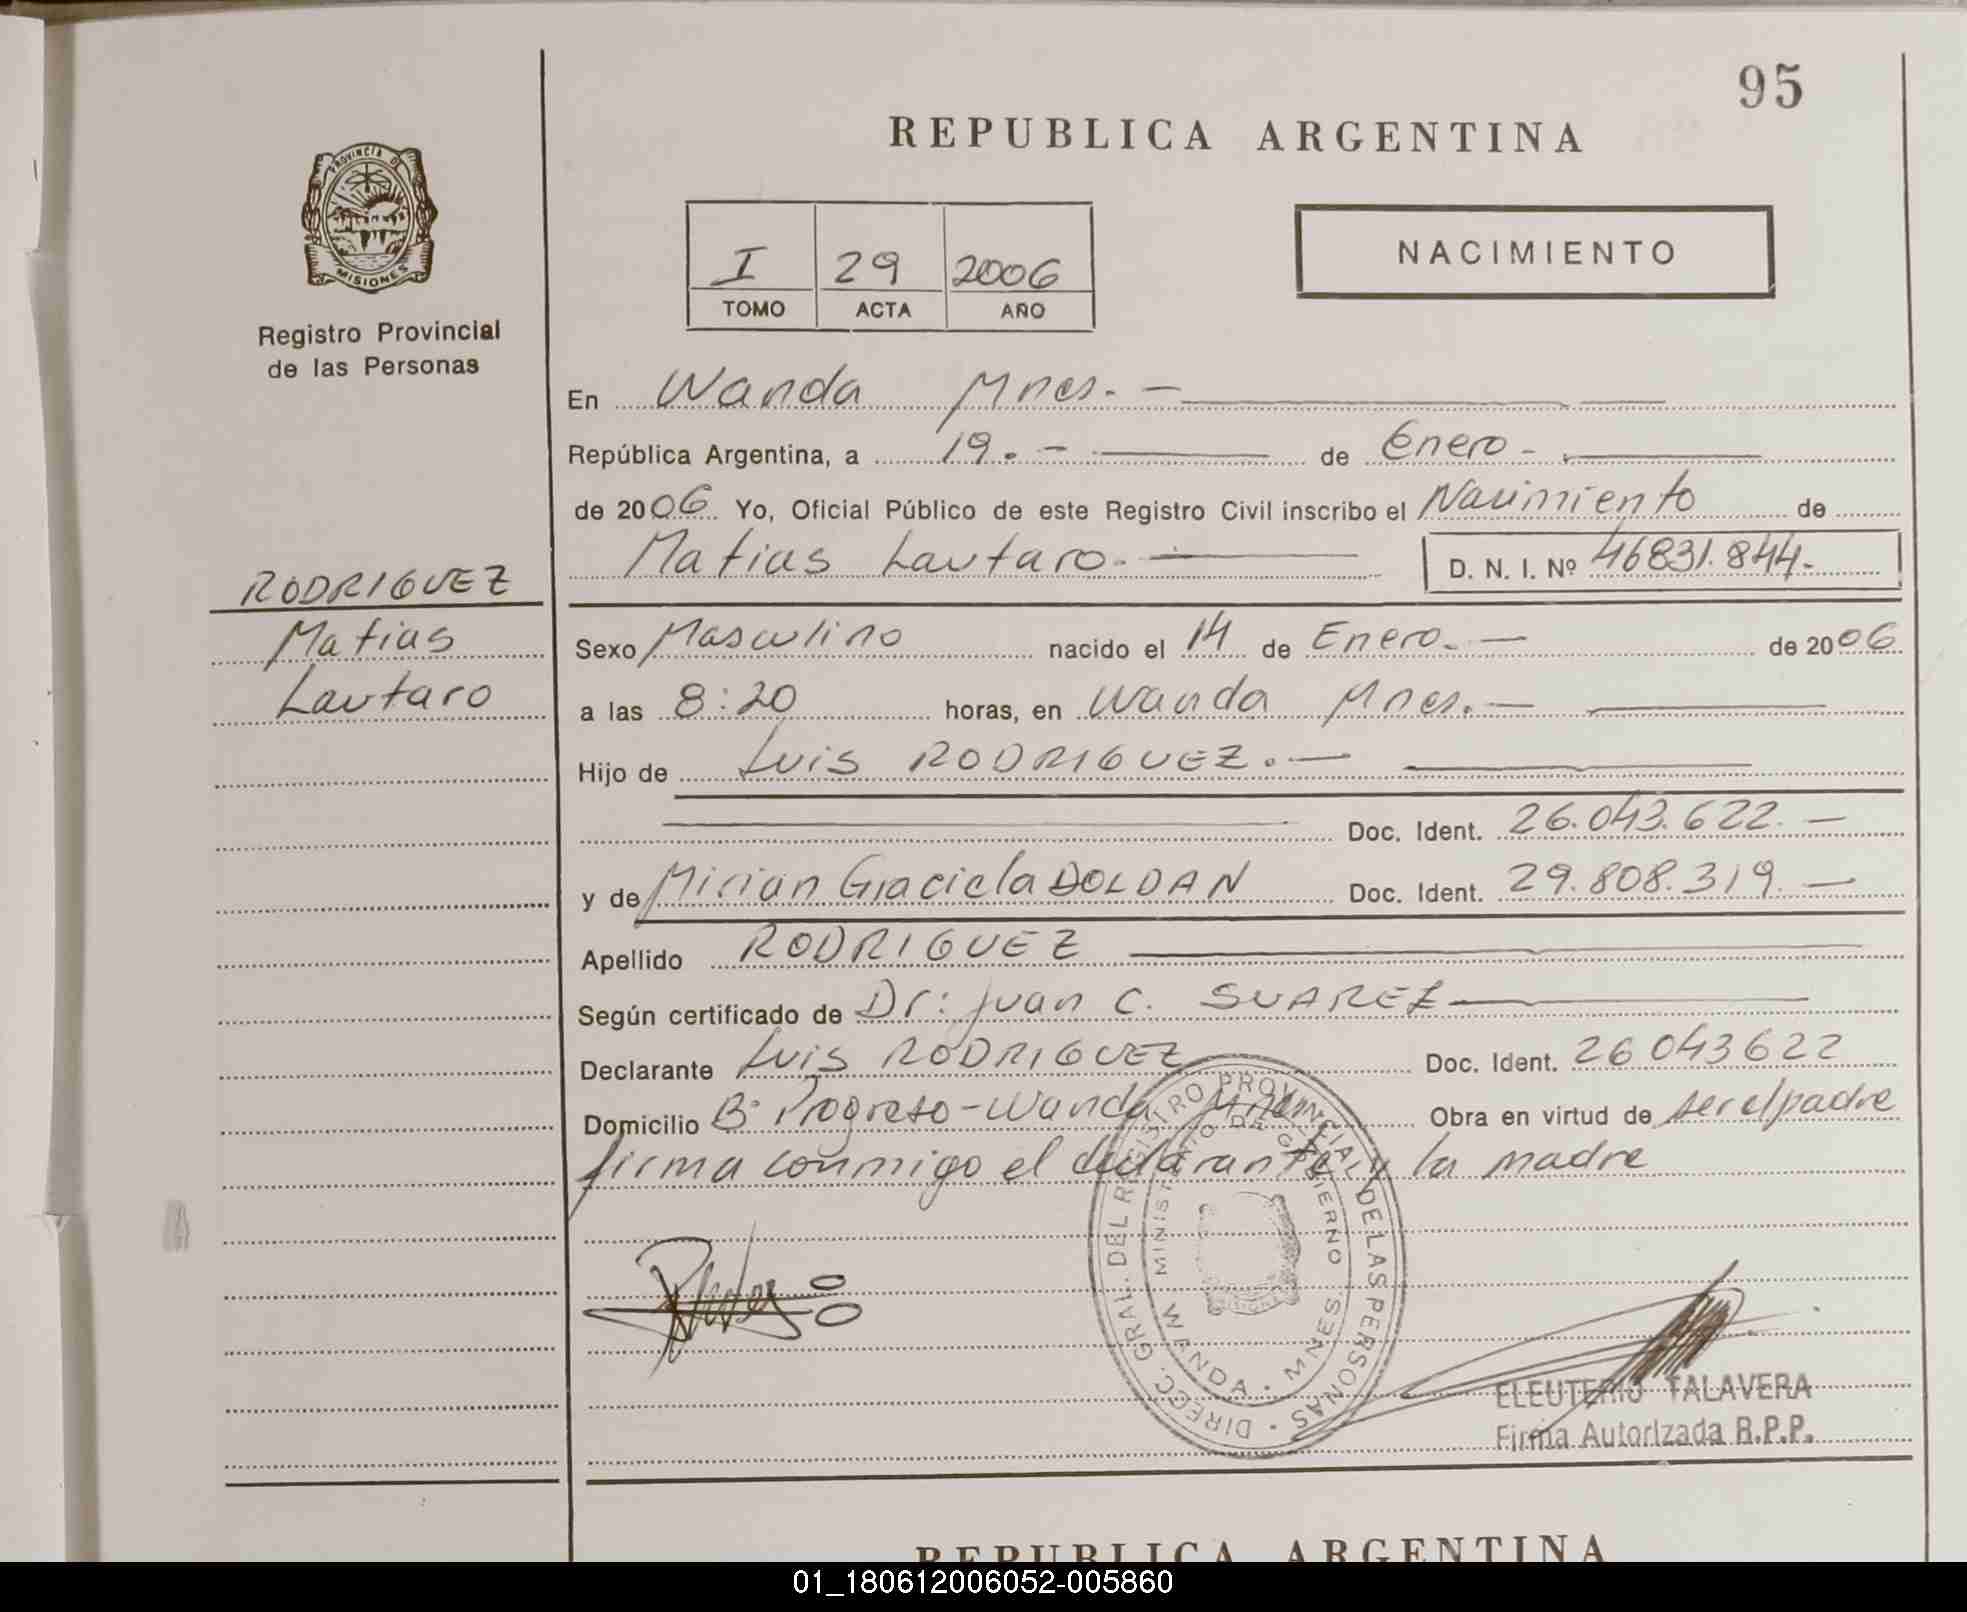 95
REPUBLICA ARGENTINA
PROVINCIA DE
MISIONES
Registro Provincial
de las Personas
I 29 2006
TOMO ACTA AÑO
NACIMIENTO
En Wanda Mnes. -
República Argentina, a 19. - de Enero -
de 2006 Yo, Oficial Público de este Registro Civil inscribo el Nacimiento de
Matias Lautaro. - D. N. I. Nº 46831.844-
RODRIGUEZ
Matias
Lautaro
Sexo Masculino nacido el 14 de Enero. - de 2006
a las 8:20 horas, en Wanda Mnes. -
Hijo de Luis RODRIGUEZ. -
Doc. Ident. 26.043.622. -
y de Mirian Graciela DOLDAN Doc. Ident. 29.808.319. -
Apellido RODRIGUEZ
Según certificado de Dr: Juan C. SUAREZ
Declarante Luis RODRIGUEZ Doc. Ident. 26043622
Domicilio Bº Progreso - Wanda Mnes. Obra en virtud de ser el padre
firma conmigo el declarante y la madre
DIREC. GRAL. DEL REGISTRO PROVINCIAL DE LAS PERSONAS
MINISTERIO DE GOBIERNO
WANDA - MNES
ELEUTERIO TALAVERA
Firma Autorizada R.P.P.
REPUBLICA ARGENTINA
01_180612006052-005860